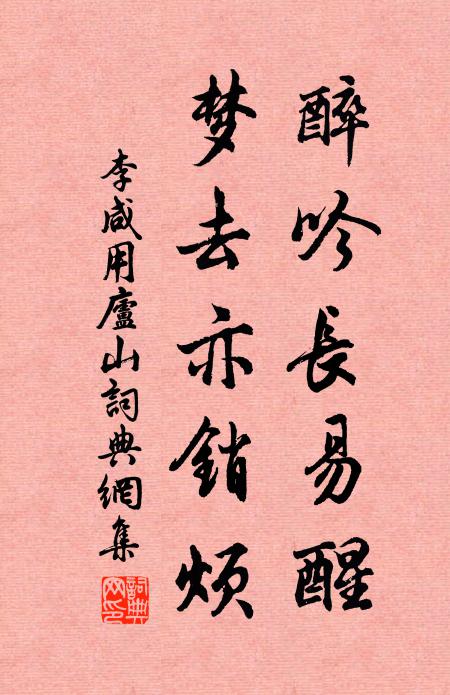 醉吟長易醒
梦去亦銷煩
李咸用廬山詞典網集
詞典网印